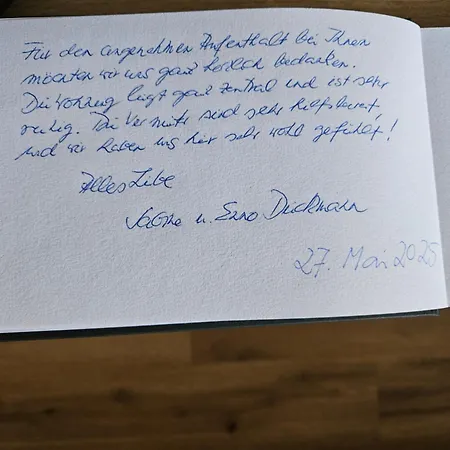 Für den angenehmen Aufenthalt bei Ihnen
möchten wir uns ganz herzlich bedanken.
Die Wohnung liegt ganz zentral und ist sehr
ruhig. Die Vermieter sind sehr hilfsbereit,
und wir haben uns hier sehr wohl gefühlt!
Alles Liebe
u. Enno Dieckmann
27. Mai 2025